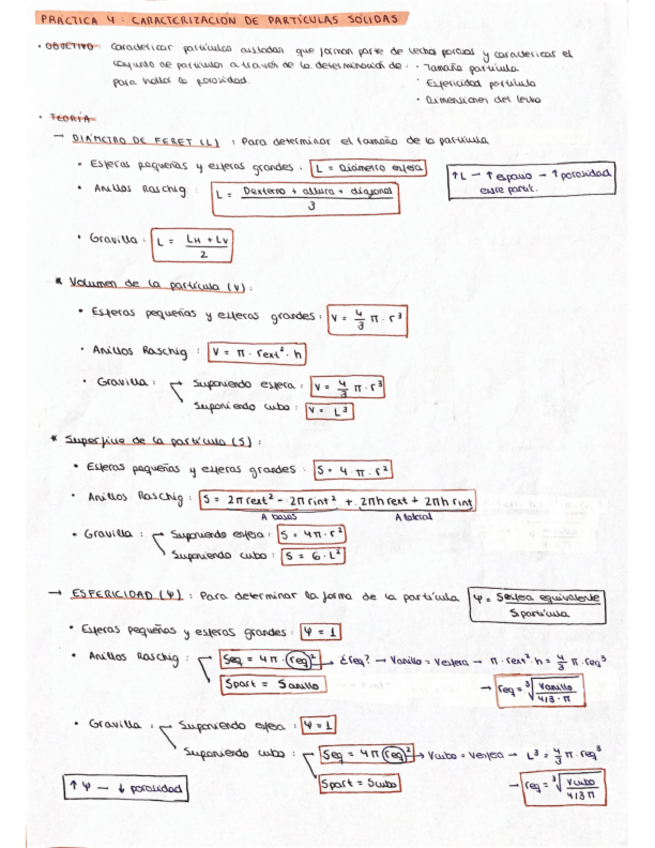 PRÁCTICA 4: CARACTERIZACIÓN DE PARTÍCULAS SÓLIDAS
· OBJETIVO: Caracterizar partículas aisladas que forman parte de lechos porosos y caracterizar el
conjunto de partículas a través de la determinación de: · Tamaño partícula
para hallar la porosidad. · Esfericidad partícula
· Dimensiones del lecho
· TEORÍA
→ DIÁMETRO DE FERET (L) : Para determinar el tamaño de la partícula
· Esferas pequeñas y esferas grandes : L = Diámetro esfera
↑L — ↑ espacio → ↑ porosidad
entre partíc.
· Anillos Raschig : L = Dexterno + altura + diagonal / 3
· Gravilla : L = LH + LV / 2
* Volumen de la partícula (V) :
· Esferas pequeñas y esferas grandes : V = 4/3 π · r³
· Anillos Raschig : V = π · rext² · h
· Gravilla : Suponiendo esfera : V = 4/3 π · r³
Suponiendo cubo : V = L³
* Superficie de la partícula (S) :
· Esferas pequeñas y esferas grandes : S = 4 · π · r²
· Anillos Raschig : S = 2π rext² - 2π rint² + 2πh rext + 2πh rint
A bases A lateral
· Gravilla : Suponiendo esfera : S = 4π · r²
Suponiendo cubo : S = 6 · L²
→ ESFERICIDAD (Ψ) : Para determinar la forma de la partícula Ψ = Sesfera equivalente / Spartícula
· Esferas pequeñas y esferas grandes : Ψ = 1
· Anillos Raschig : Seq = 4π · (req)² → ¿req? → Vanillo = Vesfera → π · rext² · h = 4/3 π · req³
Spart = Sanillo → req = ³√(Vanillo / 4/3 · π)
· Gravilla : Suponiendo esfera : Ψ = 1
Suponiendo cubo : Seq = 4π (req)² → Vcubo = Vesfera → L³ = 4/3 π · req³
Spart = Scubo → req = ³√(Vcubo / 4/3 π)
↑ Ψ — ↓ porosidad